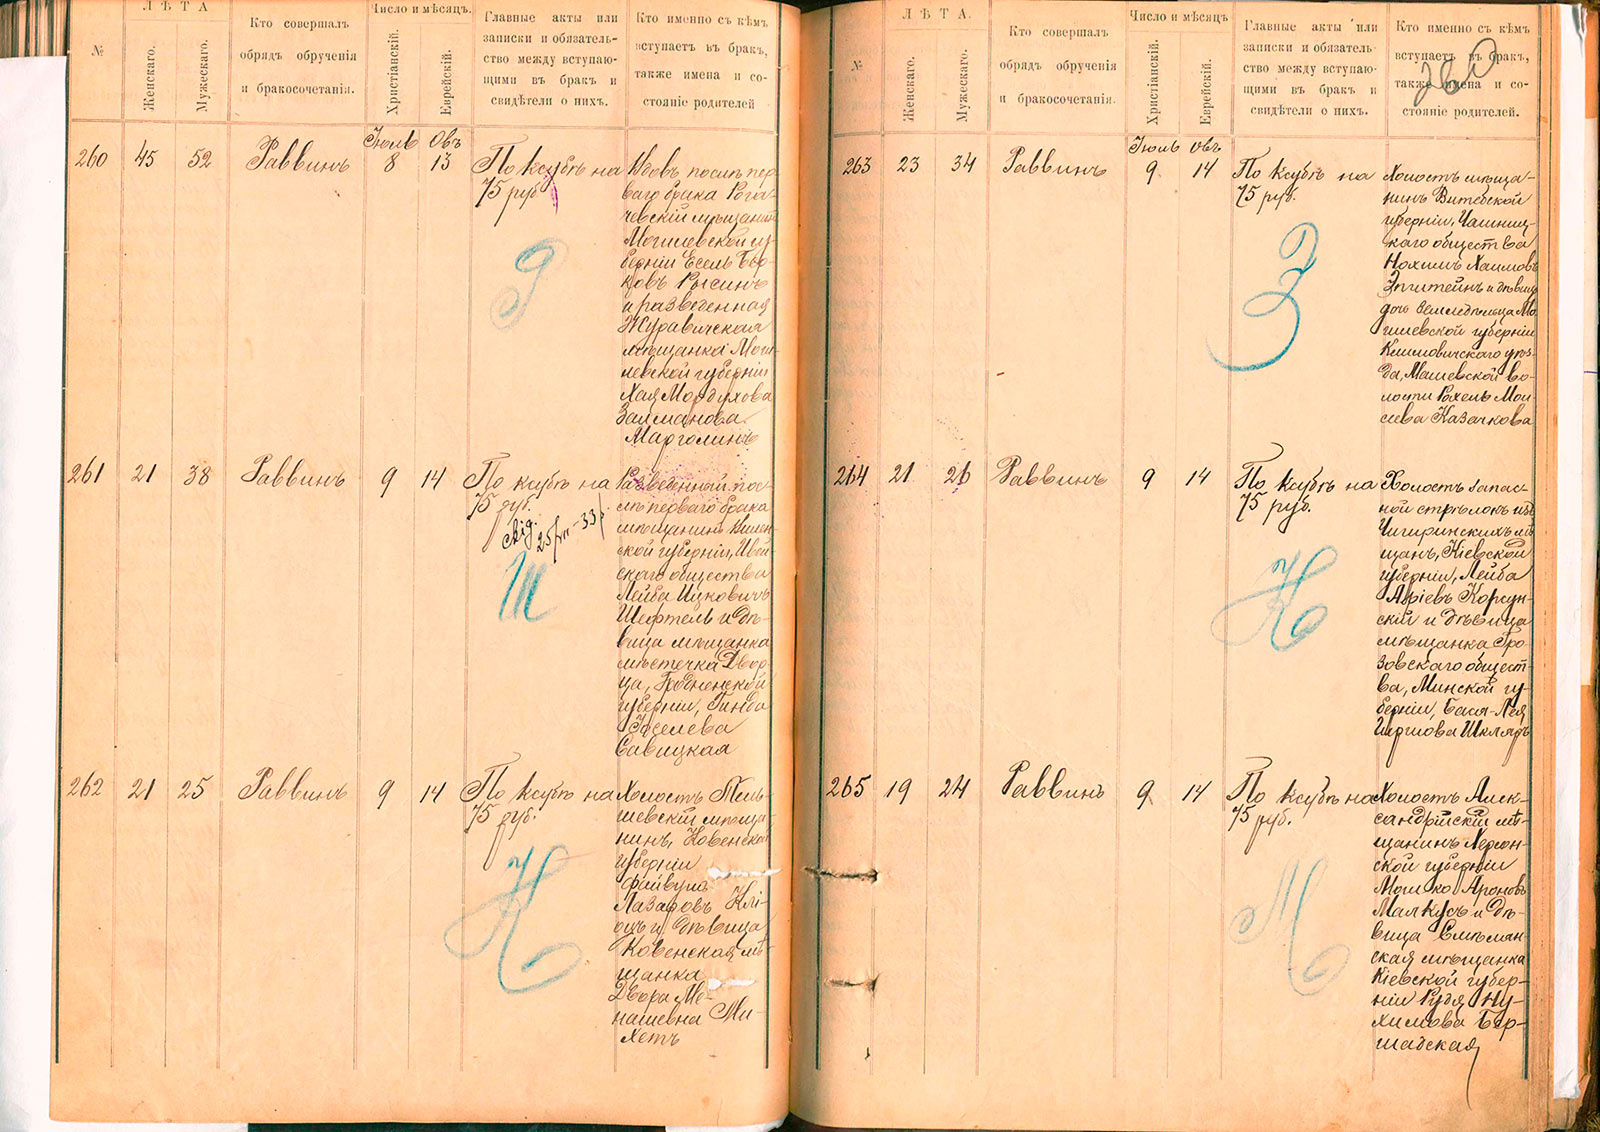 №
ЛѢТА
Женскаго.
Мужескаго.
Кто совершалъ
обрядъ обрученія
и бракосочетанія.
Число и мѣсяцъ.
Христіанскій.
Еврейскій.
Главные акты или
записки и обязатель-
ство между вступаю-
щими въ бракъ и
свидѣтели о нихъ.
Кто именно съ кѣмъ
вступаетъ въ бракъ,
также имена и со-
стояніе родителей
Іюль Овъ
260 45 52 Раввинъ 8 13
По ксубѣ на
75 руб.
Вдовъ послѣ пер
ваго брака Рога-
чевскій мѣщанинъ
Могилевской гу-
берніи Есель Бер-
ковъ Рысинъ
и разведенная
Журавичская
мѣщанка Моги-
левской губерніи
Хая Мордухова
Залманова
Марголинъ
261 21 38 Раввинъ 9 14
По ксубѣ на
75 руб.
25/VII-33
Ш
Разведенный пос-
лѣ перваго брака
мѣщанинъ Вилен
ской губерніи,
скаго общества
Лейба Ицковичъ
Шефтель и дѣ-
вица мѣщанка
мѣстечка Двор-
ца, Гродненской
губерніи, Гинда
Савицкая
262 21 25 Раввинъ 9 14
По ксубѣ на
75 руб.
К
Холостъ Тель-
шевскій мѣща-
нинъ, Ковенской
губерніи
Файвушъ
Лазаровъ Клі-
оцъ и дѣвица
Ковенская мѣ-
щанка
Двора Ме-
нашевна Ми-
хетъ
№
ЛѢТА.
Женскаго.
Мужескаго.
Кто совершалъ
обрядъ обрученія
и бракосочетанія.
Число и мѣсяцъ
Христіанскій.
Еврейскій.
Главные акты или
записки и обязатель-
ство между вступаю-
щими въ бракъ и
свидѣтели о нихъ.
Кто именно съ кѣмъ
вступаетъ въ бракъ,
также имена и со-
стояніе родителей.
Іюль Овъ
263 23 34 Раввинъ 9 14
По ксубѣ на
75 руб.
З
Холостъ мѣща-
нинъ Витебской
губерніи, Чашниц-
каго общества
Нохимъ Хаимовъ
Эпштейнъ и дѣвица
дочь земледѣльца Мо-
гилевской губерніи
Климовичскаго уѣз-
да, Машевской во-
лости Рохель Мои
сеева Казачкова
264 21 26 Раввинъ 9 14
По ксубѣ на
75 руб.
К
Холостъ запас-
ной стрѣлокъ изъ
Чигиринскихъ мѣ
щанъ, Кіевской
губерніи, Лейба
Аріевъ Корсун-
скій и дѣвица
мѣщанка Гро-
зовскаго общест-
ва, Минской гу-
берніи, Бася-Лея
Гиршова Шкляръ
265 19 24 Раввинъ 9 14
По ксубѣ на
75 руб.
М
Холостъ Алек-
сандрійскій мѣ-
щанинъ Херсон-
ской губерніи
Мошко Ароновъ
Малкусъ и дѣ-
вица Смѣлян-
ская мѣщанка
Кіевской губер-
ніи Рудя Ну-
химова Бер-
шадская